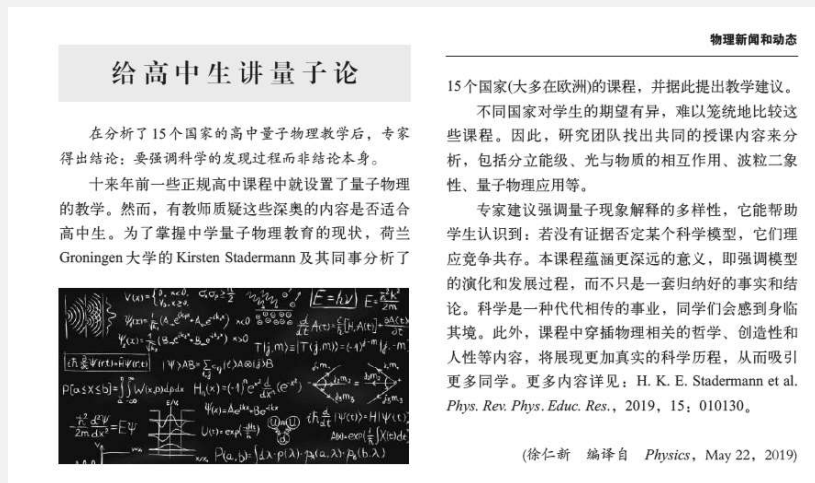 物理新闻和动态
给高中生讲量子论
在分析了15个国家的高中量子物理教学后，专家
得出结论：要强调科学的发现过程而非结论本身。
十来年前一些正规高中课程中就设置了量子物理
的教学。然而，有教师质疑这些深奥的内容是否适合
高中生。为了掌握中学量子物理教育的现状，荷兰
Groningen大学的Kirsten Stadermann及其同事分析了
15个国家(大多在欧洲)的课程，并据此提出教学建议。
不同国家对学生的期望有异，难以笼统地比较这
些课程。因此，研究团队找出共同的授课内容来分
析，包括分立能级、光与物质的相互作用、波粒二象
性、量子物理应用等。
专家建议强调量子现象解释的多样性，它能帮助
学生认识到：若没有证据否定某个科学模型，它们理
应竞争共存。本课程蕴涵更深远的意义，即强调模型
的演化和发展过程，而不只是一套归纳好的事实和结
论。科学是一种代代相传的事业，同学们会感到身临
其境。此外，课程中穿插物理相关的哲学、创造性和
人性等内容，将展现更加真实的科学历程，从而吸引
更多同学。更多内容详见：H. K. E. Stadermann et al.
Phys. Rev. Phys. Educ. Res.，2019，15：010130。
(徐仁新 编译自 Physics，May 22，2019)
E=hν